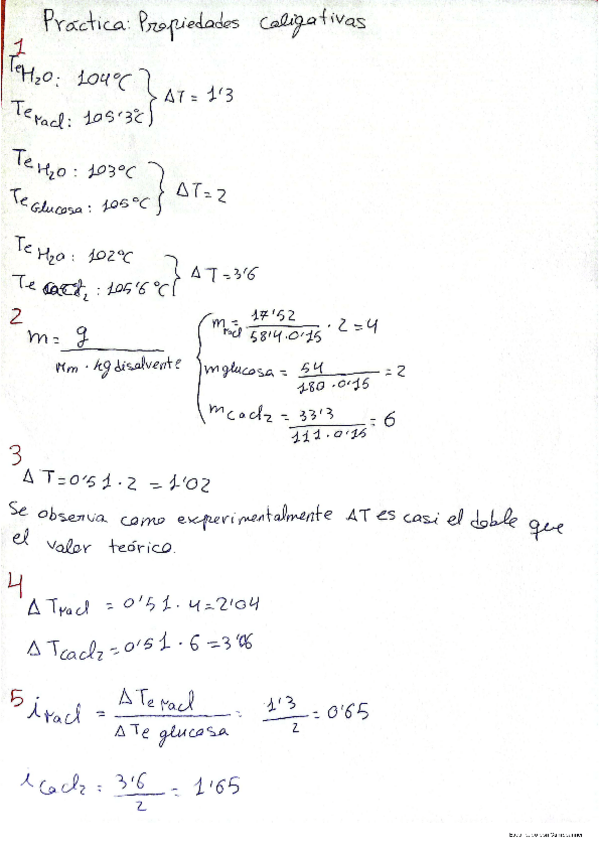 Práctica: Propiedades caligativas
1
Te H₂O: 104°C
Te Nacl: 105'3°C } ΔT = 1'3
Te H₂O: 103°C
Te Glucosa: 105°C } ΔT = 2
Te H₂O: 102°C
Te cacl₂: 105'6°C } ΔT = 3'6
2
m = g / Mm · kg disolvente
m Nacl = 17'52 / 58'4 · 0'15 · 2 = 4
m glucosa = 54 / 180 · 0'15 = 2
m cacl₂ = 33'3 / 111 · 0'15 = 6
3
ΔT = 0'51 · 2 = 1'02
Se observa como experimentalmente ΔT es casi el doble que
el valor teórico.
4
ΔT Nacl = 0'51 · 4 = 2'04
ΔT cacl₂ = 0'51 · 6 = 3'06
5 i Nacl = ΔTe Nacl / ΔTe glucosa = 1'3 / 2 = 0'65
i cacl₂ = 3'6 / 2 = 1'65